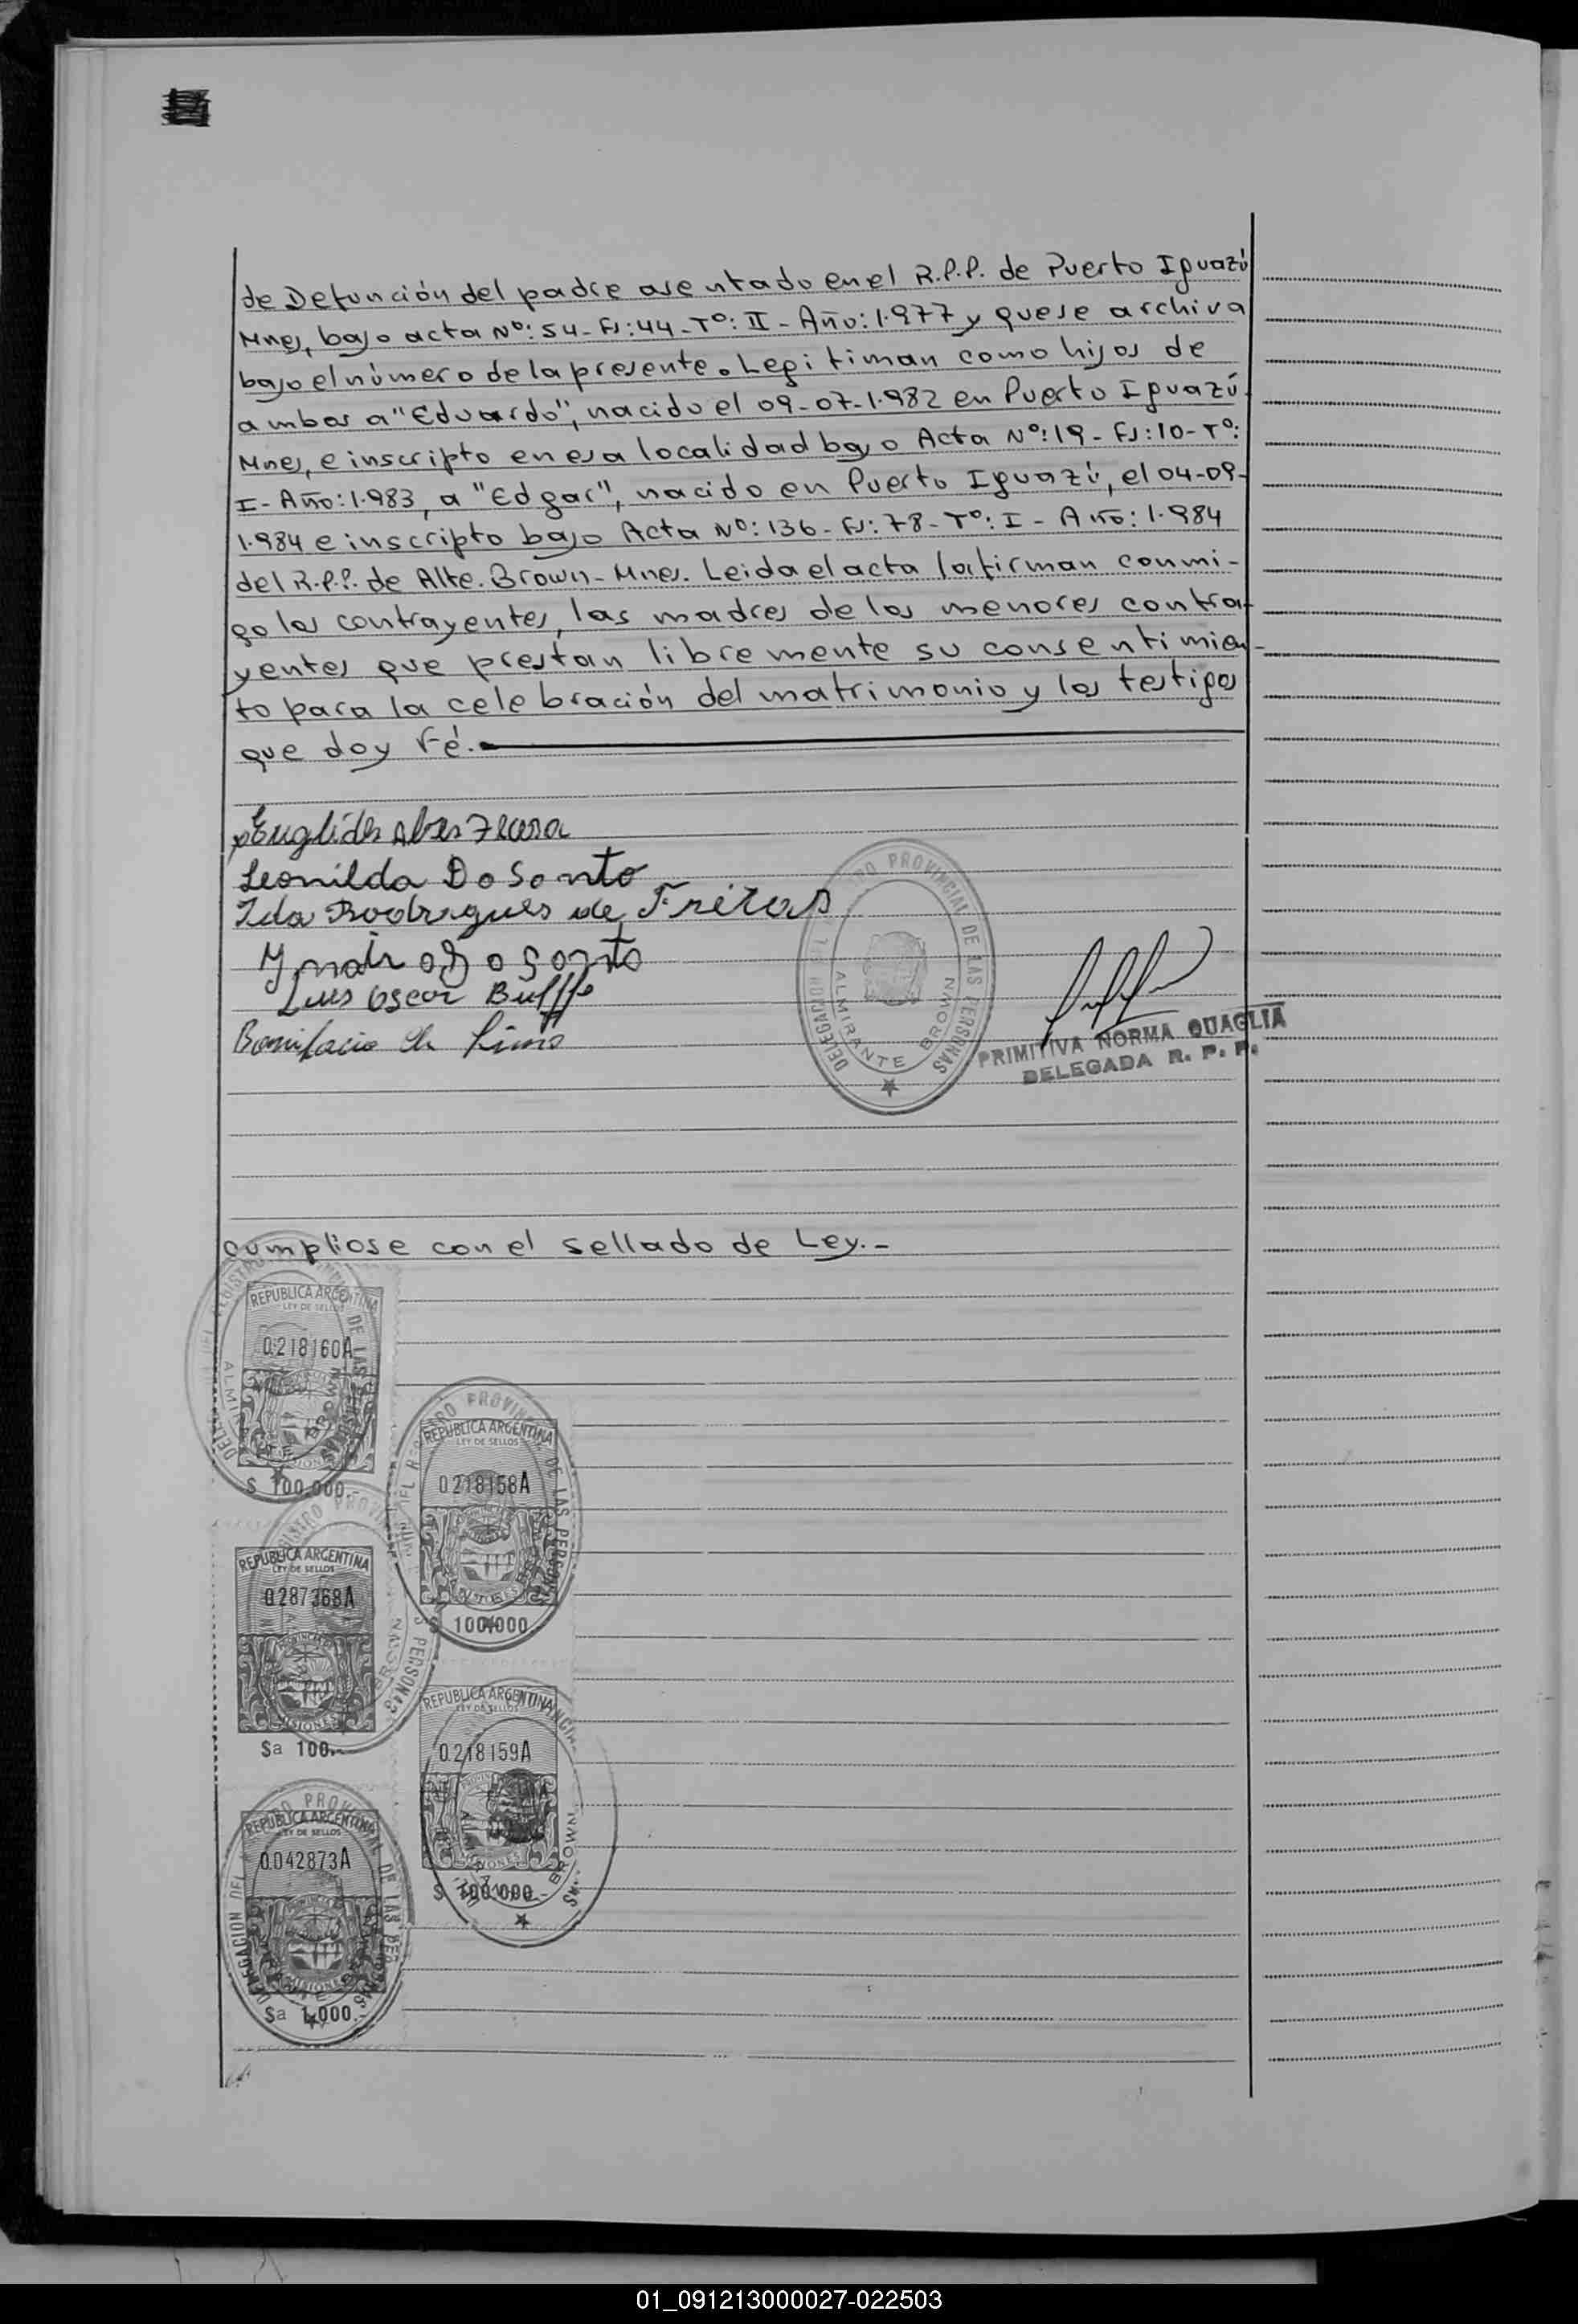 de Defunción del padre asentado en el R.P.P. de Puerto Iguazú
Mnes, bajo acta Nº: 54 - Fº: 44 - Tº: II - Año: 1.977 y que se archiva
bajo el número de la presente. Legitiman como hijos de
ambos a "Eduardo", nacido el 09-07-1.982 en Puerto Iguazú.
Mnes, e inscripto en esa localidad bajo Acta Nº: 19 - Fº: 10 - Tº:
I - Año: 1.983, a "Edgar", nacido en Puerto Iguazú, el 04-09-
1.984 e inscripto bajo Acta Nº: 136 - Fº: 78 - Tº: I - Año: 1.984
del R.P.P. de Alte. Brown - Mnes. Leida el acta la firman conmi-
go los contrayentes, las madres de los menores contra-
yentes que prestan libremente su consentimien-
to para la celebración del matrimonio y los testigos
que doy Fé.-
Euglides Alves
Leonilda Do Santo
Ida Rodrigues de Freitas
Luis Oscar
Bonifacio
DELEGACION DEL REGISTRO PROVINCIAL DE LAS PERSONAS
ALMIRANTE BROWN
PRIMITIVA NORMA QUAGLIA
DELEGADA R. P. P.
Cumpliose con el sellado de Ley.-
REPUBLICA ARGENTINA
LEY DE SELLOS
0218160A
$ 100.000.-
REPUBLICA ARGENTINA
LEY DE SELLOS
0218158A
$ 100.000
REPUBLICA ARGENTINA
LEY DE SELLOS
0287368A
MISIONES
$a 100.-
REPUBLICA ARGENTINA
LEY DE SELLOS
0218159A
MISIONES
$ 100.000
REPUBLICA ARGENTINA
LEY DE SELLOS
0042873A
MISIONES
$a 1.000.-
01_091213000027-022503